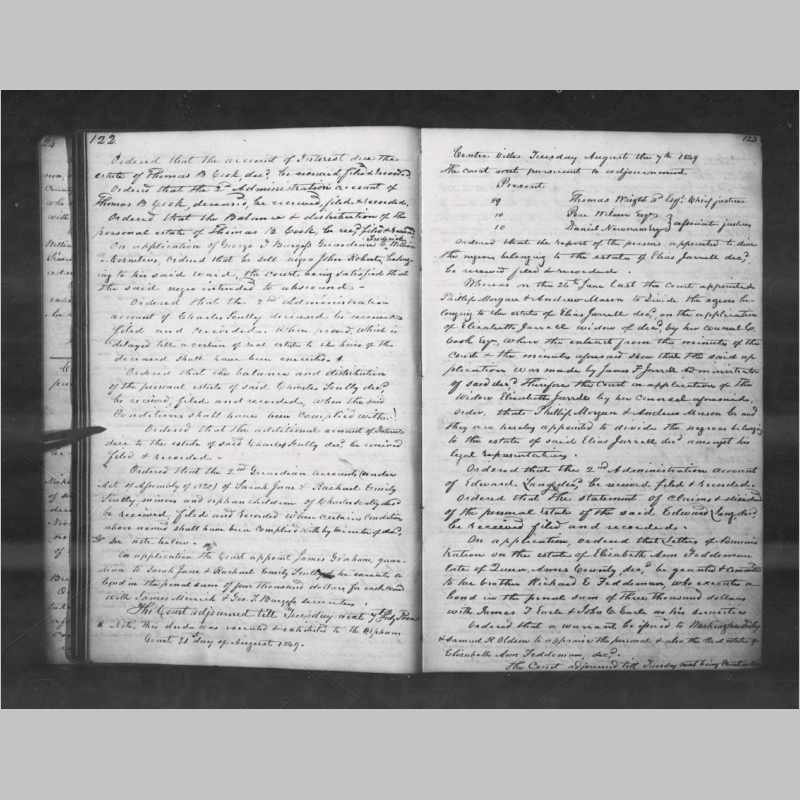 122
Ordered that the account of Interest due the
estate of Thomas B Cook, decd be received, filed & recorded
Ordered that the 2nd Administration account of
Thomas B. Cook, deceased, be received, filed & recorded.
Ordered that the Balance & distribution of the
personal estate of Thomas B. Cook, be recd filed &
On application of George T Burgess Guardian
Cornelius, ordered that he sell negro John Roberts, belong-
ing to his said ward, the Court, being satisfied that
the said negro intended to abscond.
Ordered that the 2nd Administration
account of Charles Scully deceased be received
filed and recorded. When proved, which is
delayed till a certain of real estate to the heirs of the
deceased shall have been executed
Ordered that the balance and distribution
of the personal estate of said Charles Scully decd
be received, filed and recorded, when the said
Conditions shall have been complied with.
Ordered that the additional account of Interest
due to the estate of said Charles Scully decd be received
filed & recorded.
Ordered that the 2nd Guardian accounts (under
Act of Assembly of 1829) of Sarah Jane & Rachael Emily
Scully, minors and orphan children of Charles Scully decd
be received, filed and recorded when certain Conditions
above named shall have been complied with by
see note below.
On application the Court appoint James Graham, guar-
dian to Sarah Jane & Rachael Emily Scully he execute a
bond in the penal sum of four thousand dollars for each ward
with James Merrick & Geo. T. Burgess securities.
The Court adjourned till Tuesday next 7
Note, this deed was executed & exhibited to the Orphans
Court 21 day of August 1849.
123
Centre Ville Tuesday August the 7th 1849
The court met pursuant to adjournment.
Present
Thomas Wright 3d Esqr. Chief justice
10 Pere Wilmer Esqr
10 Daniel Newnam Esqr } associate justices
Ordered that the report of the persons appointed to divide
the negroes belonging to the estate of Elias Jarrell decd
be received filed & recorded.
Whereas on the 26th June last the Court appointed
Phillip Morgan & Andrew Mason to Divide the negroes be-
longing to the estate of Elias Jarrell decd, on the application
of Elizabeth Jarrell widow of decd, by her counsel C.
Cook Esqr, when the extract from the minutes of the
Court & the minutes aforesaid shew that the said ap
plication was made by James T Jarrell Administrator
of said decd Therefore the Court on application of the
Widow Elizabeth Jarrell by her Counsel aforesaid,
order, that Phillip Morgan & Andrew Mason be and
they are hereby appointed to divide the negroes belonging
to the estate of said Elias Jarrell decd amongst his
legal representatives.
Ordered that the 2nd Administration account
of Edward Lang, decd, be received, filed & recorded.
Ordered that the statement of claims & dividend
of the personal estate of the said Edward Lang, decd
be received filed and recorded.
On application, ordered that letters of Adminis
tration on the estate of Elizabeth Ann Feddeman
late of Queen Anns County, decd, be granted & committed
to her brother Richard E Feddeman, who executes a
bond in the penal sum of three thousand dollars
with James T Earle & John C Earle as his securities
Ordered that a warrant be issued to Washington
& Samuel R. Oldson to appraise the personal & also the real estate of
Elizabeth Ann Feddeman, decd.
The Court adjourned till Tuesday next being